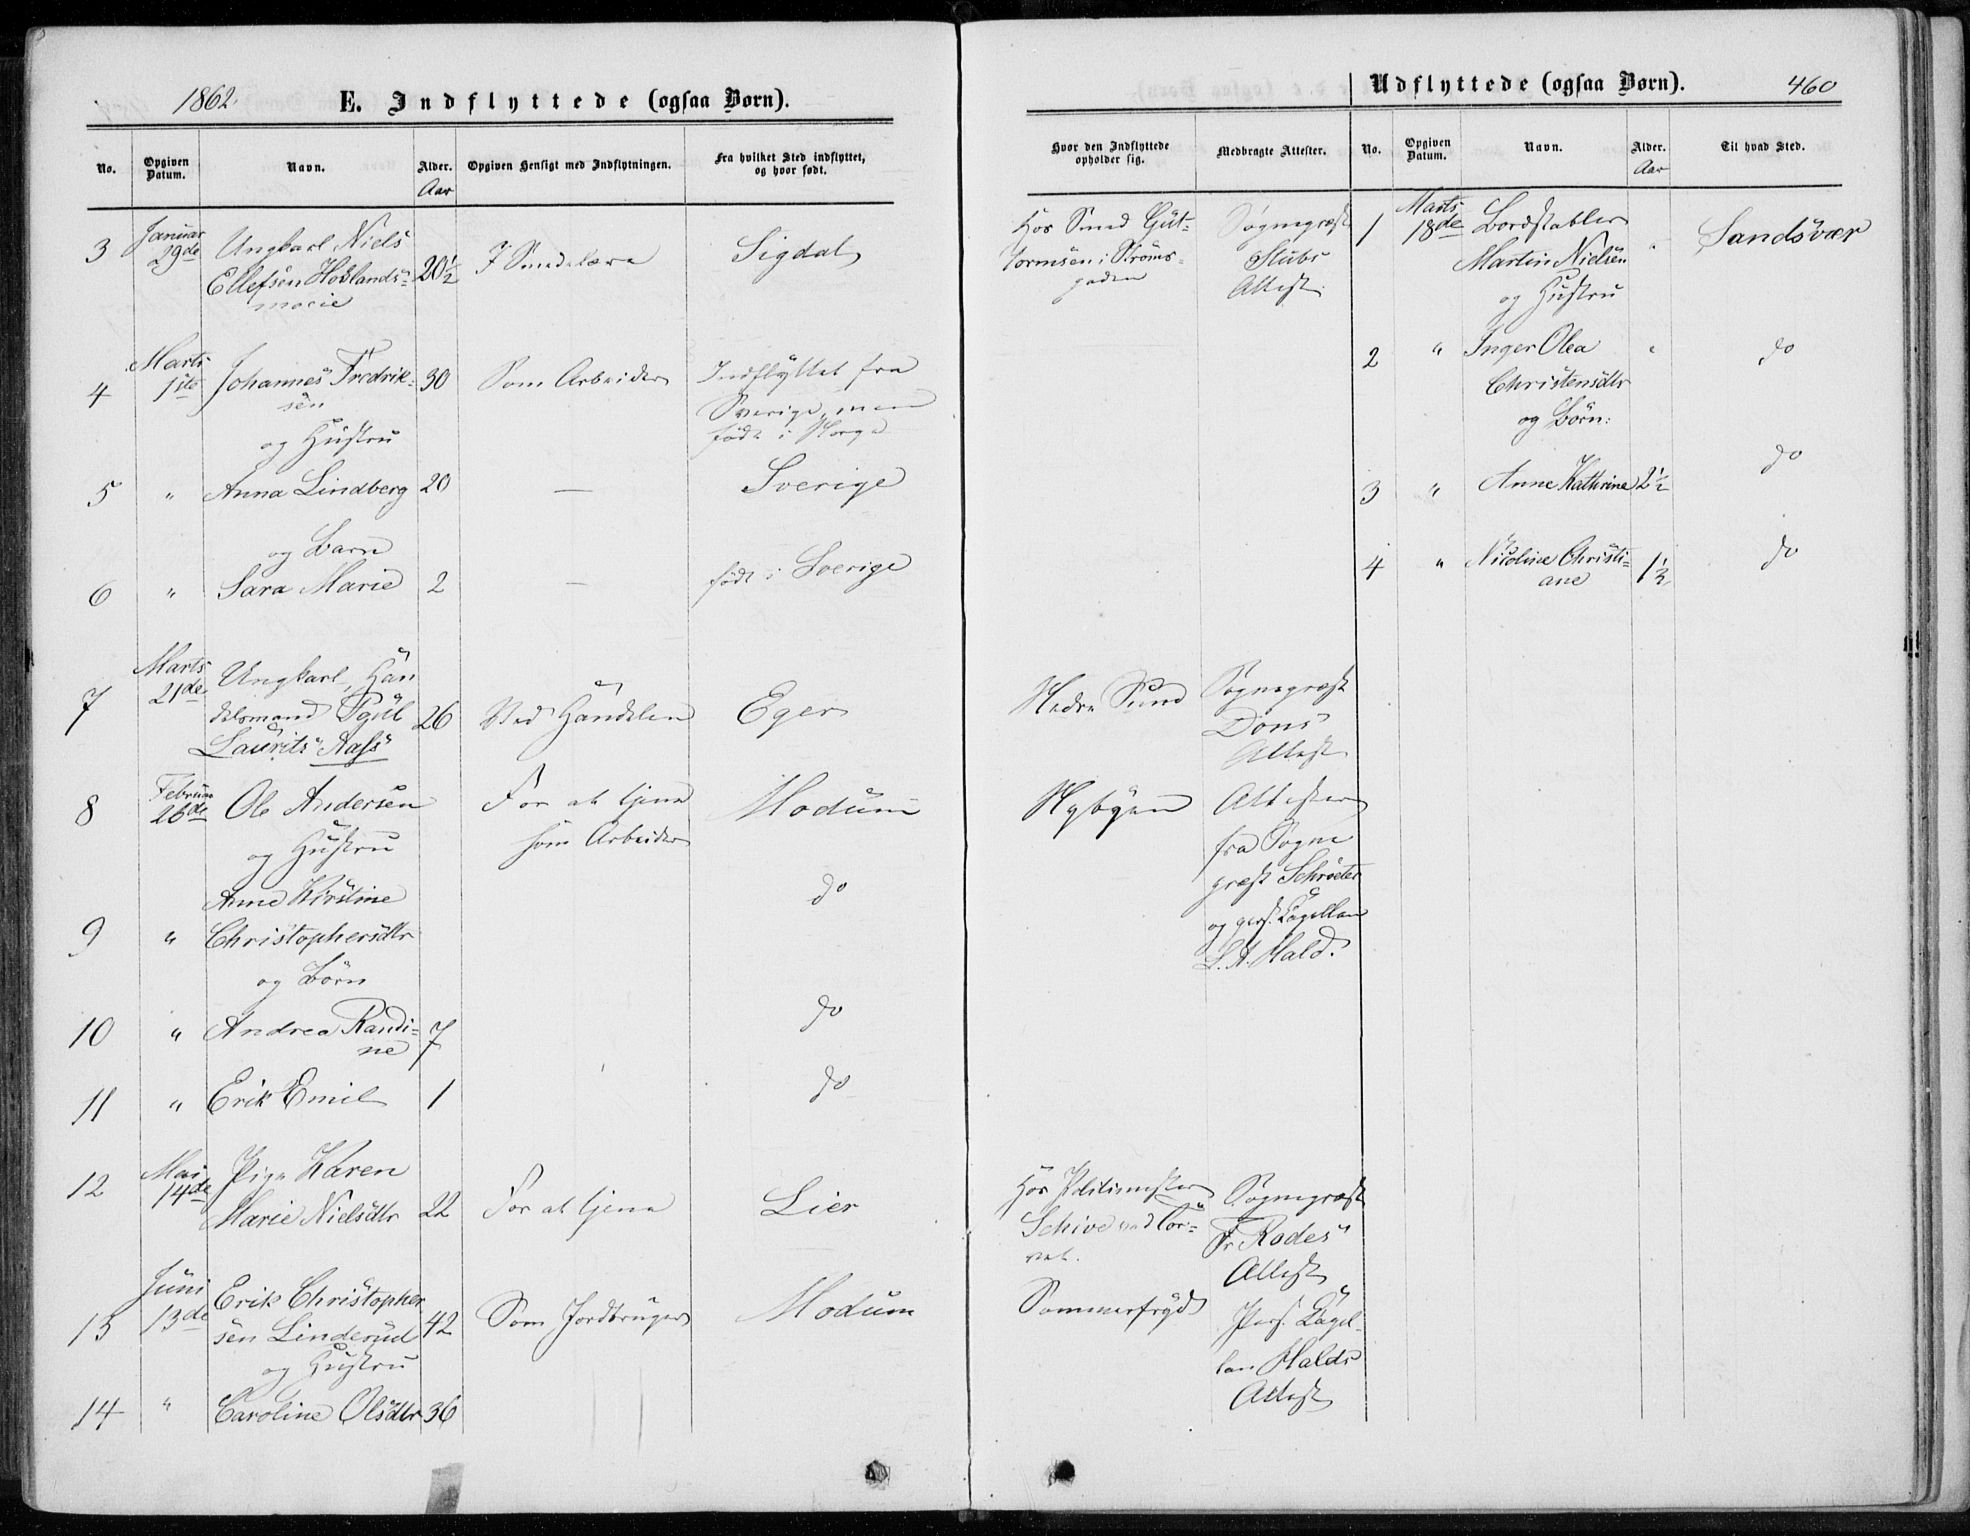 1862.
E. Indflyttede (ogsaa Børn).
No.
Opgiven Datum.
Navn.
Alder.
Aar
Opgiven Hensigt med Indflytningen.
Fra hvilket Sted indflyttet,
og hvor født.
3
Januar
29de
Ungkarl Niels
Ellefsen Hovlands-
morie
20½
I Smedelære
Sigdal
4
Marts
1ste
Johannes Fredrik-
sen
og Hustru
30
Som Arbeider
Indflyttet fra
Sverige, men
født i Norge
5
"
Anna Lindberg
20
—
Sverige
og Barn
6
"
Sara Marie
2
—
født i Sverige
7
Marts
21de
Ungkarl, Han
delsmand
Laurits Aass
26
Ved Handelen
Eger
8
Februar
26de
Ole Andersen
og Hustru
For at tjene
som Arbeider
Modum
9
"
Anne Kirstine
Christophersdtr
og Børn
do
10
"
Andrea Randi-
ne
7
do
11
"
Erik Emil
1
do
12
Mai
14de
Pige Karen
Marie Nielsdtr
22
For at tjene
Lier
13
Juni
13de
Erik Christopher
sen Linderud
og Hustru
42
Som Jordbruger
Modum
14
"
Caroline Olsdtr
36
Udflyttede (ogsaa Børn).
460
Hvor den Indflyttede
opholder sig.
Medbragte Attester.
No.
Opgiven
Datum.
Navn.
Alder.
Aar
Til hvad Sted.
Hos Smed Gut-
tormsen i Strøms-
gaden
Sognepræst
Stubs
Attest.
Nedre Sund
Sognepræst
Dons
Attest
Nybyen
Attester
fra Sogne
præst Schrøeter
og pers. Capellan
L. A. Hald.
Hos Politimester
Schive ved Tor-
vet.
Sognepræst
Fr. Rodes
Attest
Sommerfryd
Pers. Capel-
lan Halds
Attest
1
Marts
18de
Bordstabler
Martin Nielsen
og Hustru
"
Sandsvær
2
"
Inger Olea
Christensdtr
og Børn:
"
do
3
"
Anne Kathrine
2½
do
4
"
Nicoline Christi-
ane
1½
do